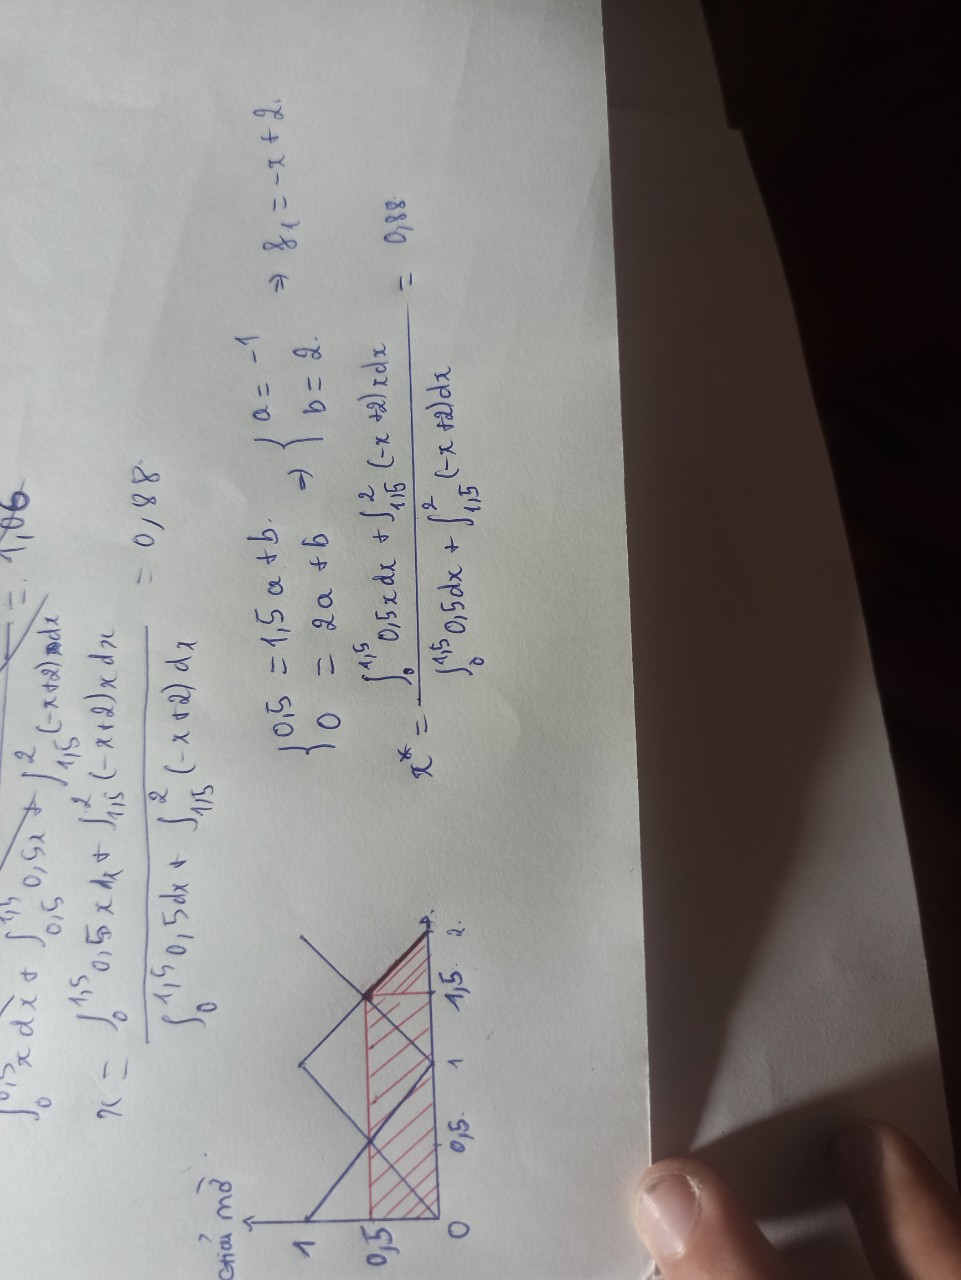 ∫₀^0,5 x dx + ∫_0,5^1,5 0,5x + ∫_1,5^2 (-x+2) dx = 1,06
x = (∫₀^1,5 0,5 x dx + ∫_1,5^2 (-x+2) x dx) / (∫₀^1,5 0,5 dx + ∫_1,5^2 (-x+2) dx) = 0,88.
mờ
1
0,5
0
0,5.
1
1,5.
2.
{ 0,5 = 1,5a + b.
0 = 2a + b ⇒ { a = -1
b = 2. ⇒ g₁ = -x + 2.
x* = (∫₀^1,5 0,5 x dx + ∫_1,5^2 (-x+2) x dx) / (∫₀^1,5 0,5 dx + ∫_1,5^2 (-x+2) dx) = 0,88.